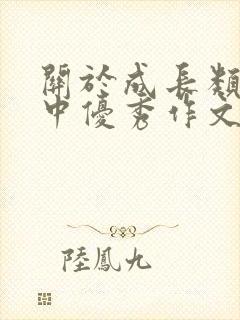 關於成長類
中優秀作文
陸鳳九